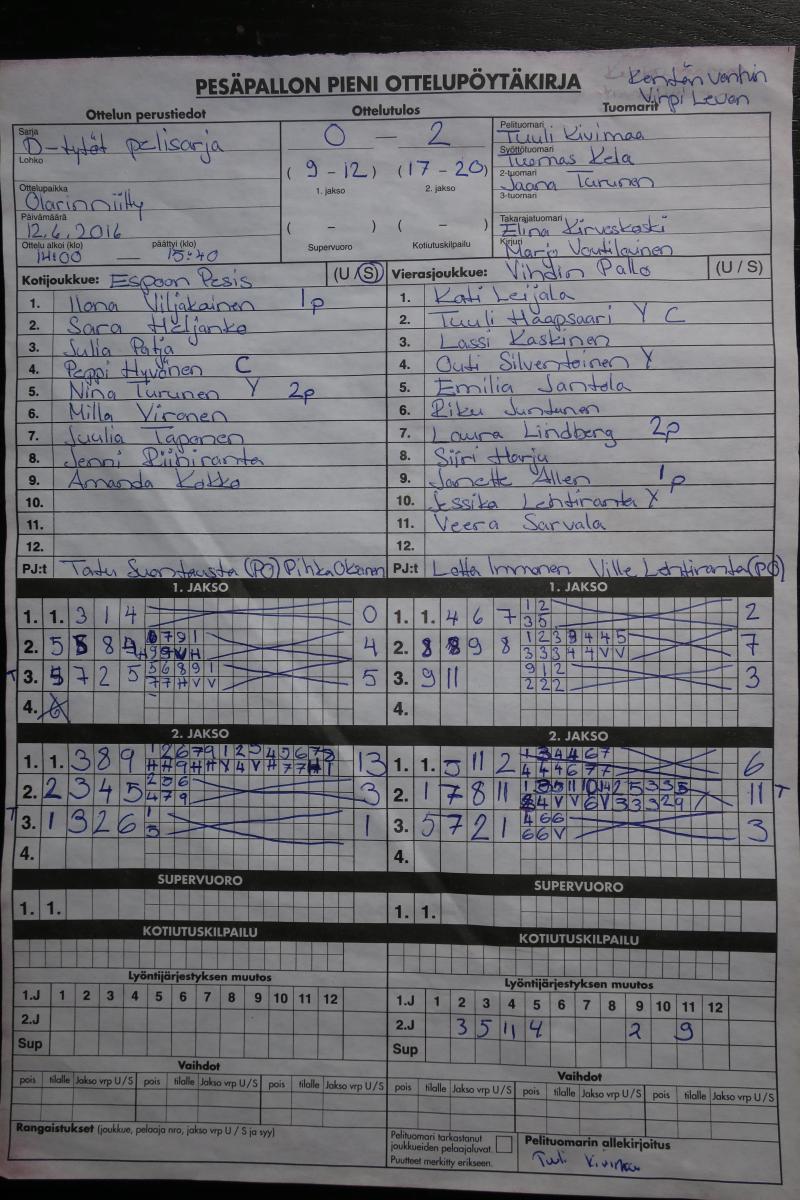 Kentän vanhin
Virpi Levon
PESÄPALLON PIENI OTTELUPÖYTÄKIRJA
Ottelun perustiedot
Ottelutulos
Tuomarit
Sarja
D-tytöt pelisarja
Lohko
Ottelupaikka
Olarinniitty
Päivämäärä
12.6.2016
Ottelu alkoi (klo) päättyi (klo)
14:00 — 15:40
0 – 2
( 9 - 12 ) ( 17 - 20 )
1. jakso 2. jakso
( – ) ( – )
Supervuoro Kotiutuskilpailu
Pelituomari
Tuuli Kivimaa
Syöttötuomari
Tuomas Kela
2-tuomari
Jaana Turunen
3-tuomari
Takarajatuomari
Elina Kirveskoski
Kirjuri
Marjo Voutilainen
Kotijoukkue: Espoon Pesis (U / S)
1. Ilona Viljakainen 1p
2. Sara Heljanko
3. Julia Patja
4. Peppi Hyvönen C
5. Nina Turunen Y 2p
6. Milla Vironen
7. Juulia Taponen
8. Jenni Riihiranta
9. Amanda Kokko
10.
11.
12.
PJ:t Tatu Suontausta (PO)
Vierasjoukkue: Vihdin Pallo (U / S)
1. Kati Leijala
2. Tuuli Haapsaari Y C
3. Lassi Kaskinen
4. Outi Silventoinen Y
5. Emilia Jantola
6. Riku Juntunen
7. Laura Lindberg 2p
8. Siiri Harju
9. Janette Allen 1p
10. Jessika Lehtiranta Y
11. Veera Sarvala
12.
PJ:t Lotta Immonen Ville Lehtiranta (PO)
1. JAKSO
1. 1. 3 1 4 0
2. 4
3. 7 2 5 5
4.
1. JAKSO
1. 1. 4 6 7 2
1 2
3 5
2. 7
3. 9 11 3
9 1 2
2 2 2
4.
2. JAKSO
1. 1. 3 8 9 13
2. 2 3 4 5 3
2 5 6
4 7 9
3. 1 3 2 6 1
4.
2. JAKSO
1. 1. 5 11 2 6
2. 1 7 8 11 11 T
3. 5 7 2 1 3
4 6 6
6 6 V
4.
SUPERVUORO
1. 1.
SUPERVUORO
1. 1.
KOTIUTUSKILPAILU
KOTIUTUSKILPAILU
Lyöntijärjestyksen muutos
1.J 1 2 3 4 5 6 7 8 9 10 11 12
2.J
Sup
Lyöntijärjestyksen muutos
1.J 1 2 3 4 5 6 7 8 9 10 11 12
2.J 3 5 11 4 2 9
Sup
Vaihdot
pois tilalle Jakso vrp U / S pois tilalle Jakso vrp U / S pois tilalle Jakso vrp U / S
Vaihdot
pois tilalle Jakso vrp U / S pois tilalle Jakso vrp U / S pois tilalle Jakso vrp U / S
Rangaistukset (joukkue, pelaaja nro, jakso vrp U / S ja syy)
Pelituomari tarkastanut
joukkueiden pelaajaluvat.
Puutteet merkitty erikseen.
Pelituomarin allekirjoitus
Tuuli Kivimaa